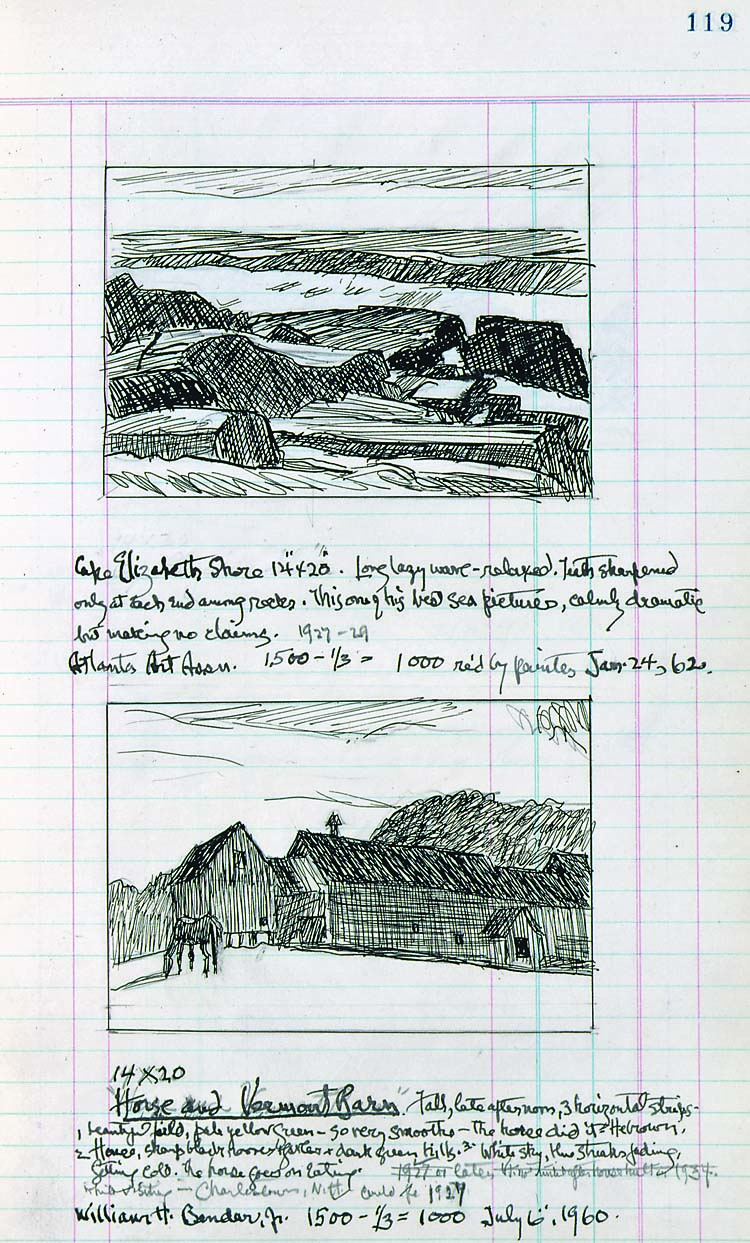 119
Cape Elizabeth Shore 14"x20". Long lazy wave - relaxed. Teeth sharpened
only at each end among rocks. This one of his best sea pictures, calmly dramatic
but making no claims. 1927-29
Atlanta Art Assn. 1,500 - 1/3 = 1000 rc'd by painter Jan. 24, 62.
14 x 20
"Horse and Vermont Barn" Fall, late afternoon, 3 horizontal strips -
1, beautiful field, pale yellow green - so very smooth - The horse did it? He brown.
2 - House, sharp black + dark green hills. 3 - White sky, blue streaks fading,
Getting cold. The horse goes on eating. 1927 or later 1934.
visiting in Charlestown, N.H. Could be 1927
William H. Bender, Jr. 1500 - 1/3 = 1000 July 6, 1960.